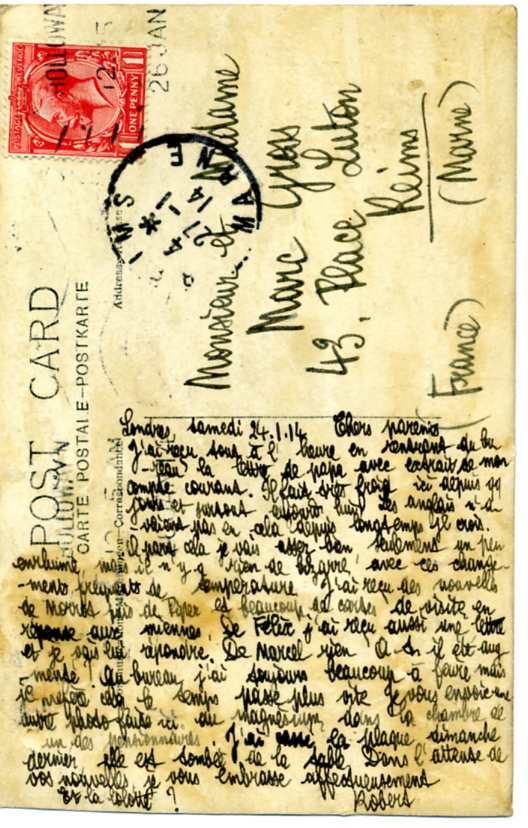 POST CARD
CARTE POSTALE-POSTKARTE
HOLLOWAY
26 JAN
POSTAGE REVENUE
ONE PENNY
MARNE
27-1
14
Monsieur et Madame
Marc Gross
43, Place Luton
Reims
(Marne)
(France)
Londres, samedi 24.1.14. Chers parents
J'ai reçu tout à l'heure en rentrant du bu
reau la lettre de papa avec extrait de mon
compte courant. Il fait très froid ici depuis
jours et surtout aujourd'hui. Les anglais n'a
vaient pas eu cela depuis longtemps je crois.
à part cela je vais assez bien seulement un peu
enrhumé mais il n'y a rien de bizarre avec ces change-
ments fréquents de température. J'ai reçu des nouvelles
de et beaucoup de cartes de visite en
réponse aux miennes. De Félix j'ai reçu aussi une lettre
et je vais lui répondre. De Marcel rien. A-t-il été aug
menté? Au bureau j'ai toujours beaucoup à faire mais
je préfère cela le temps passe plus vite. Je vous envoie une
autre photo faite ici au magnésium dans la chambre de
un des pensionnaires. J'ai la plaque dimanche
dernier elle est tombée de la table. Dans l'attente de
vos nouvelles je vous embrasse affectueusement
Et la ? Robert